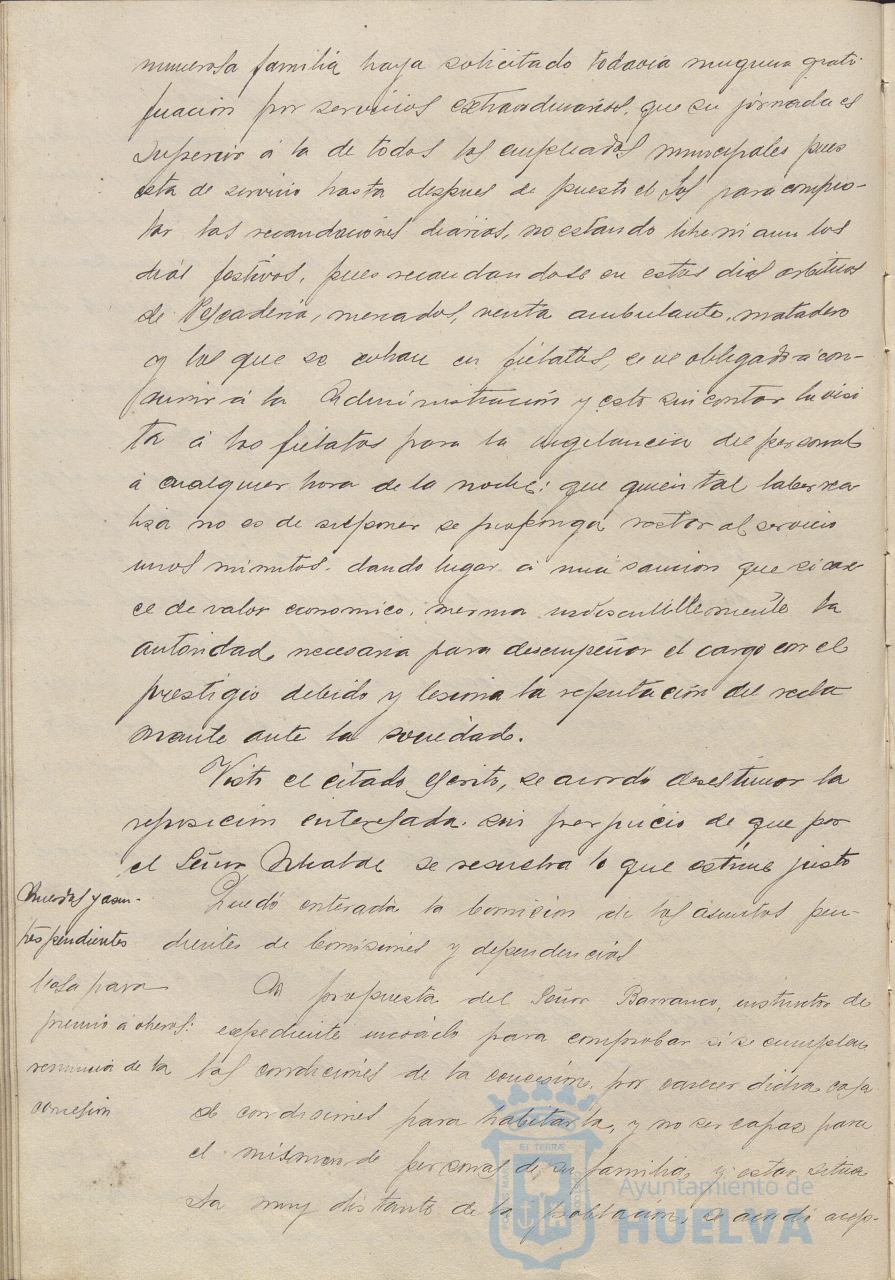 numerosa familia haya solicitado todavia ninguna grati-
ficación por servicios extraordinarios, que su jornada es
superior á la de todos los empleados municipales pues
esta de servicio hasta despues de puesto el Sol para compro-
bar las recaudaciones diarias, no estando libre ni aun los
dias festivos, pues recaudandose en estos dias arbitrios
de Pescaderia, mercados, venta ambulante, matadero
y los que se cobran en fielatos, se ve obligado á con-
currir á la Administración y esto sin contar la visi
ta á los fielatos para la vigilancia del personal
á cualquier hora de la noche: que quien tal labor rea
liza no es de suponer se proponga restar al servicio
unos minutos, dando lugar á una sancion que si care
ce de valor economico, merma indiscutiblemente la
autoridad necesaria para desempeñar el cargo con el
prestigio debido y lesiona la reputación del recla
mante ante la sociedad.
Visto el citado escrito, se acordó desestimar la
reposición interesada sin perjuicio de que por
el Señor Alcalde se resuelva lo que estime justo
Ruedas y asun-
tos pendientes
Quedó enterada la Comision de los asuntos pen-
dientes de Comisiones y dependencias
Casa para
premio á obreros:
renuncia de la
concesion
A propuesta del Señor Barranco, instructor de
expediente incoado para comprobar si se cumplen
las condiciones de la concesion, por carecer dicha casa
de condiciones para habitarla, y no ser capaz para
el mismo de personas de su familia, y estar situa
da muy distante de la población, se acordó acep-
Ayuntamiento de
HUELVA